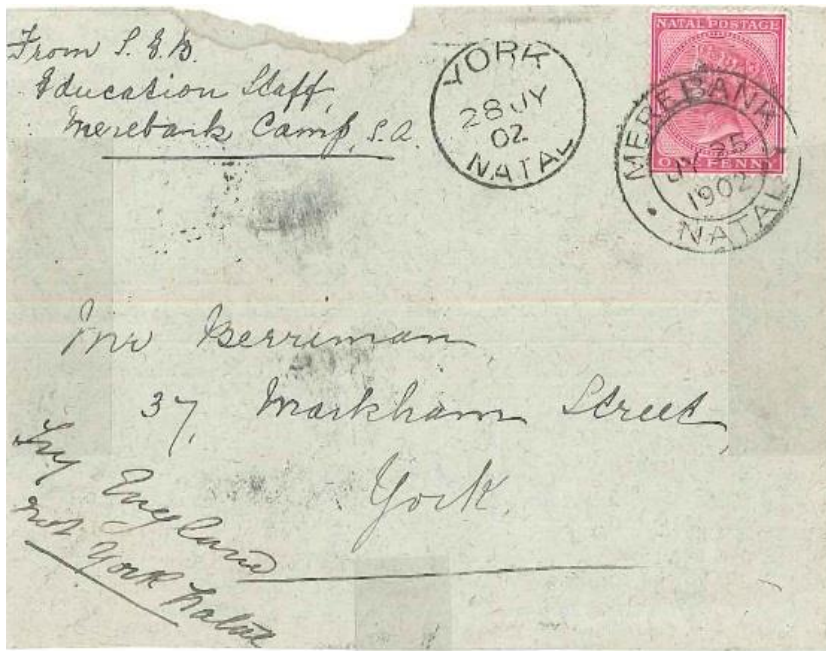 From S. E. B.
Education Staff,
Merebank Camp, S.A.
YORK
28 JY
02
NATAL
NATAL POSTAGE
ONE PENNY
MEREBANK
JY 25
1902
NATAL
Mr Berriman,
37, Markham Street,
York.
Try England
not York Natal